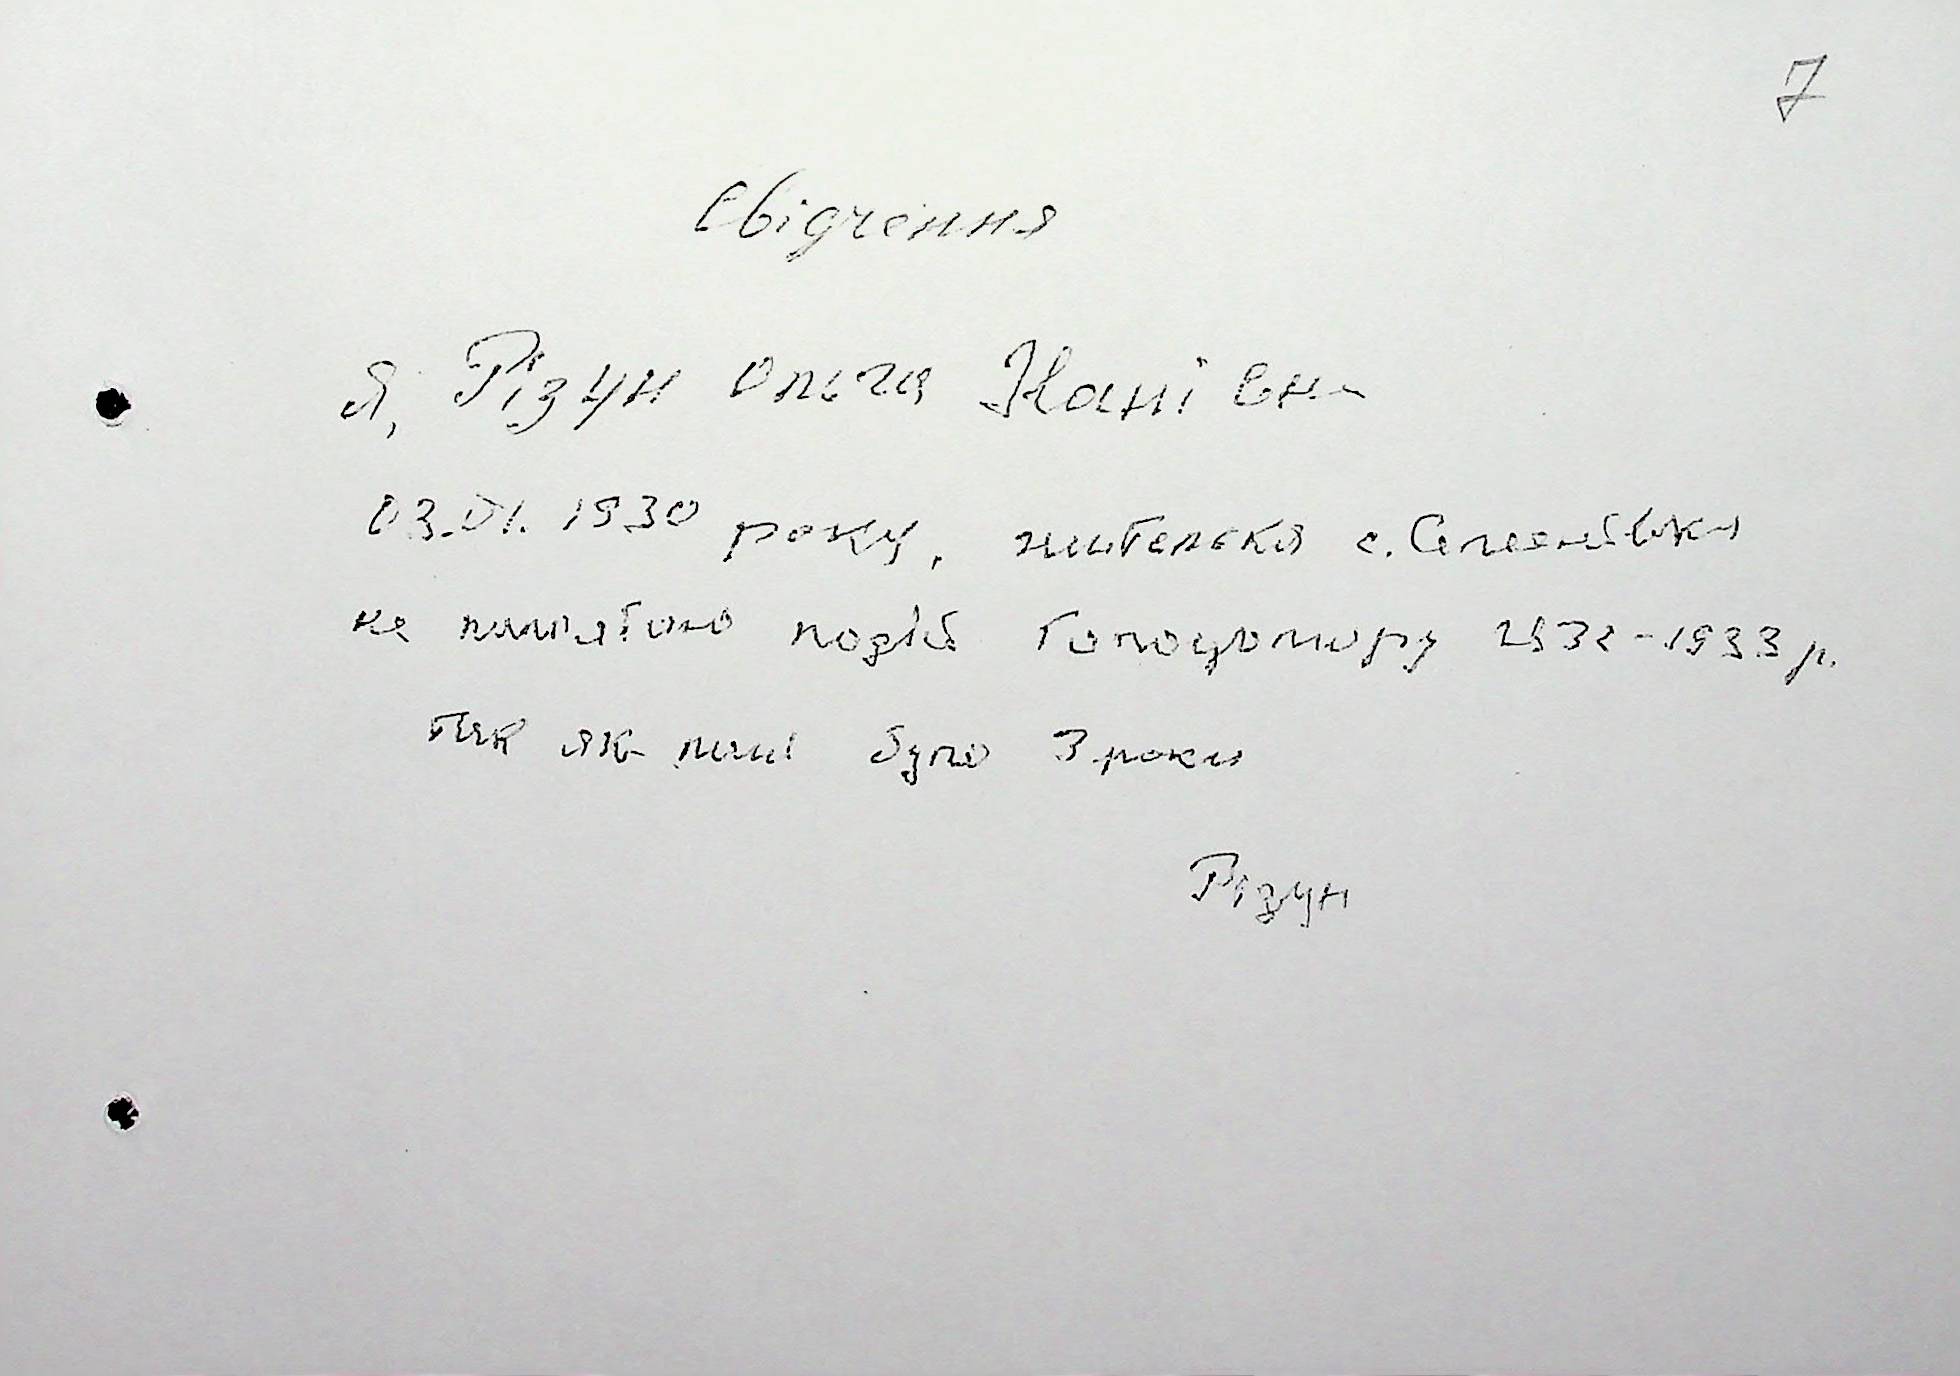 7
Свідчення
Я, Різун Ольга Іванівна
03.01.1930 року, жителька с.
не пам'ятаю подій Голодомору 1932-1933 р.
так як мені було 3 роки
Різун